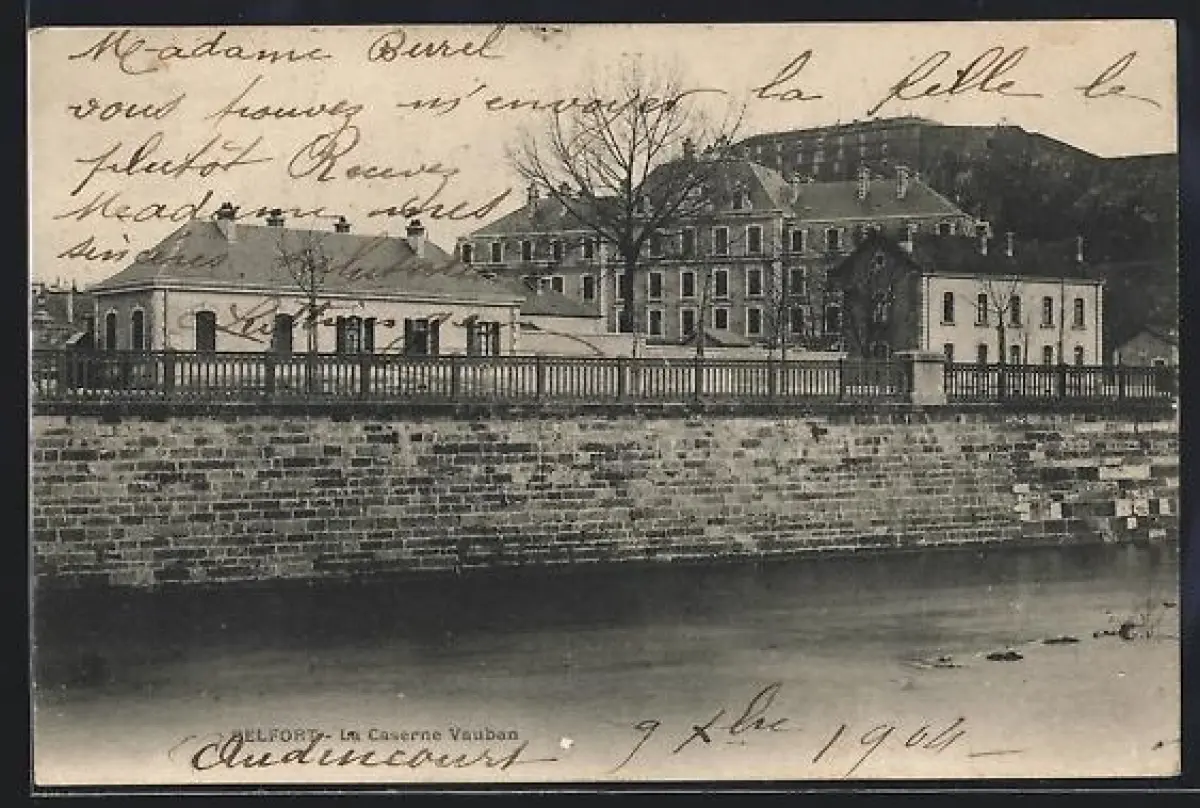 Madame Burrel
vous trouvez m'envoyer la fille le
plutôt Rouvez
Madame mes
sincères salutations
BELFORT - La Caserne Vauban
Audincourt 9 Xbre 1904